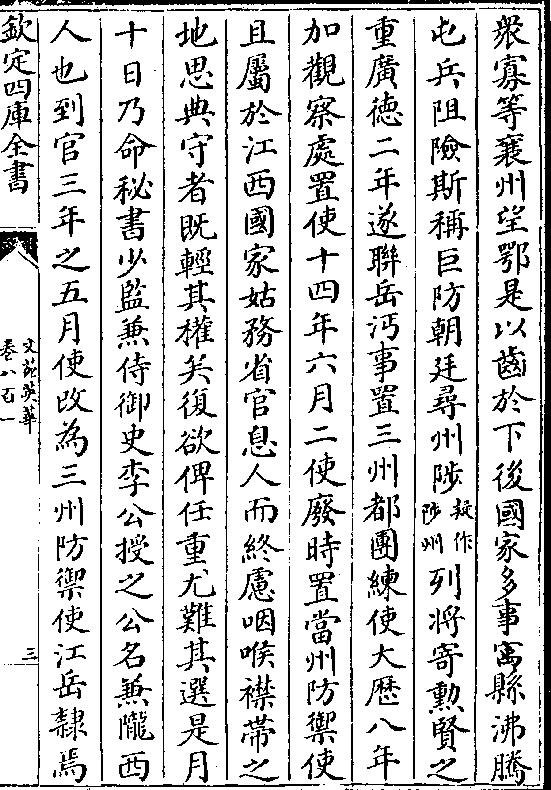 衆寡等襄州望鄂是以齒於下後國家多事寓縣沸騰
屯兵阻險斯稱巨防朝廷尋州陟疑作陟州列將寄勲賢之
重廣徳二年遂聯岳沔事置三州都團練使大厯八年
加觀察處置使十四年六月二使廢時置當州防禦使
且屬於江西國家姑務省官息人而終慮咽喉襟帶之
地思典守者既輕其權矣復欲俾任重尤難其選是月
十日乃命秘書少監兼侍御史李公授之公名兼隴西
人也到官三年之五月使改為三州防禦使江岳隸焉
欽定四庫全書
文苑英華
卷八百一
三